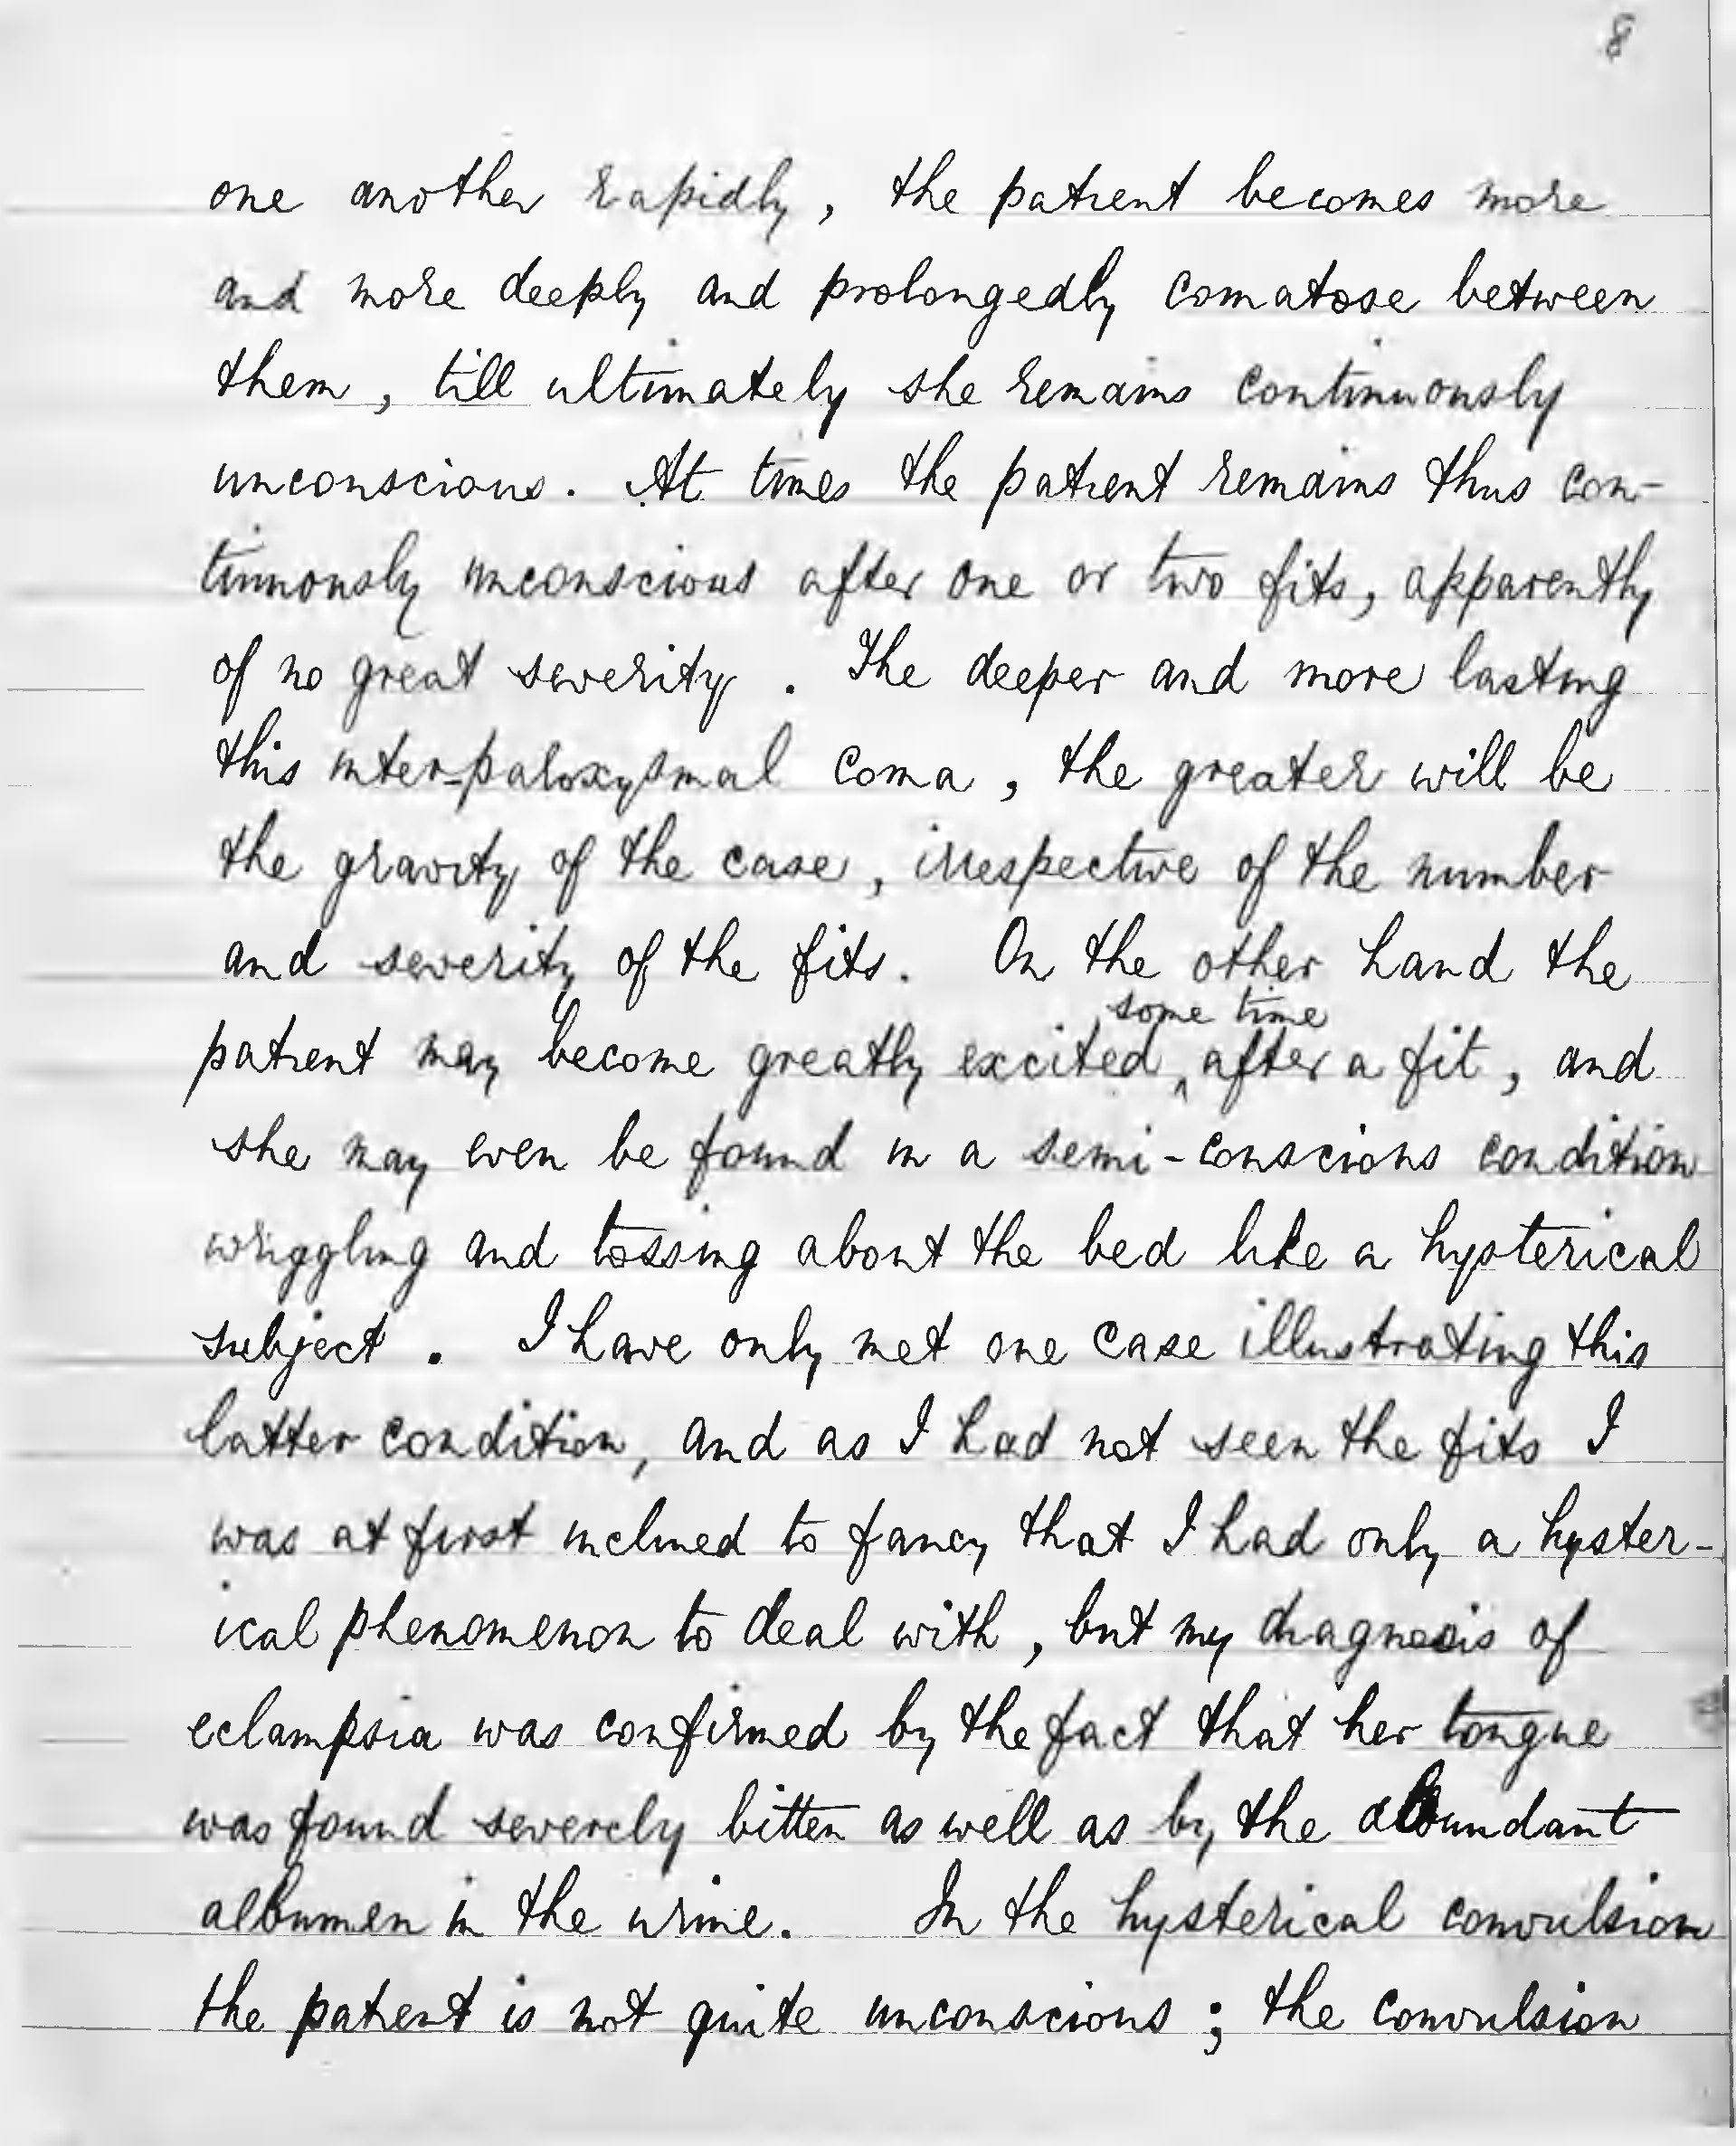 8
one another rapidly, the patient becomes more
and more deeply and prolongedly comatose between
them, till ultimately she remains continuously
unconscious. At times the patient remains thus con-
tinuously unconscious after one or two fits, apparently
of no great severity. The deeper and more lasting
this inter-paroxysmal coma, the greater will be
the gravity of the case, irrespective of the number
and severity of the fits. On the other hand the
some time
patient may become greatly excited ‸ after a fit, and
she may even be found in a semi-conscious condition
wriggling and tossing about the bed like a hysterical
subject. I have only met one case illustrating this
latter condition, and as I had not seen the fits I
was at first inclined to fancy that I had only a hyster-
ical phenomenon to deal with, but my diagnosis of
eclampsia was confirmed by the fact that her tongue
was found severely bitten as well as by the abundant
albumen in the urine. In the hysterical convulsion
the patient is not quite unconscious; the convulsion